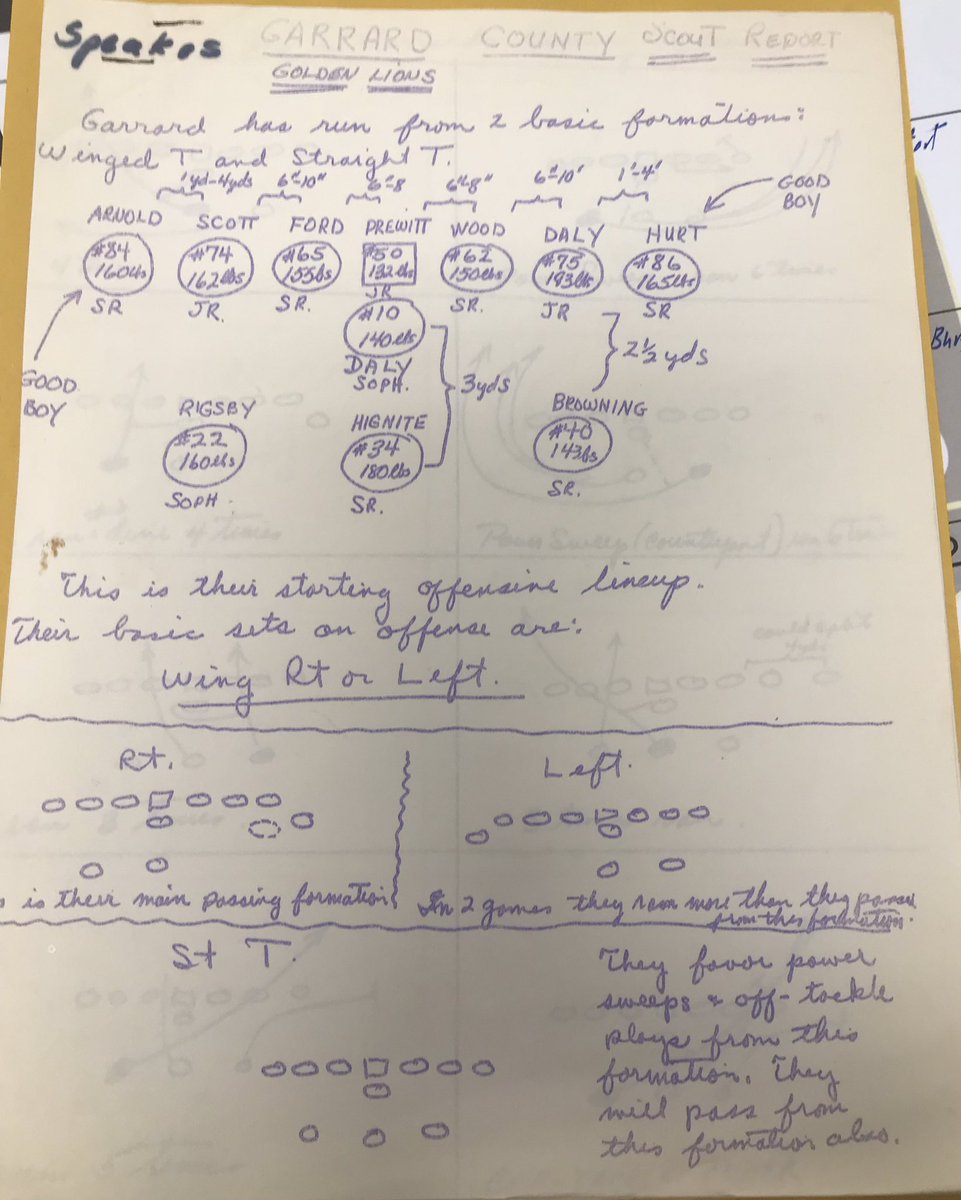 Speakes GARRARD COUNTY SCOUT REPORT
GOLDEN LIONS
Garrard has run from 2 basic formations:
Winged T and Straight T.
1yd-4yds 6"-10" 6"-8 6"-8" 6"-10' 1'-4'
GOOD BOY
ARNOLD SCOTT FORD PREWITT WOOD DALY HURT
#84 #74 #65 #50 #62 #75 #86
160lbs 162lbs 155lbs 132lbs 150lbs 193lbs 165lbs
SR JR. SR. JR SR. JR SR
#10
140lbs
DALY
SOPH.
3yds
2½ yds
GOOD BOY
RIGSBY HIGNITE BROWNING
#22 #34 #40
160lbs 180lbs 143lbs
SOPH. SR. SR.
This is their starting offensive lineup.
Their basic sets on offense are:
Wing Rt or Left.
Rt. Left.
is their main passing formation
In 2 games they ran more than they passed
from this formation.
St T.
They favor power
sweeps & off-tackle
plays from this
formation. They
will pass from
this formation also.